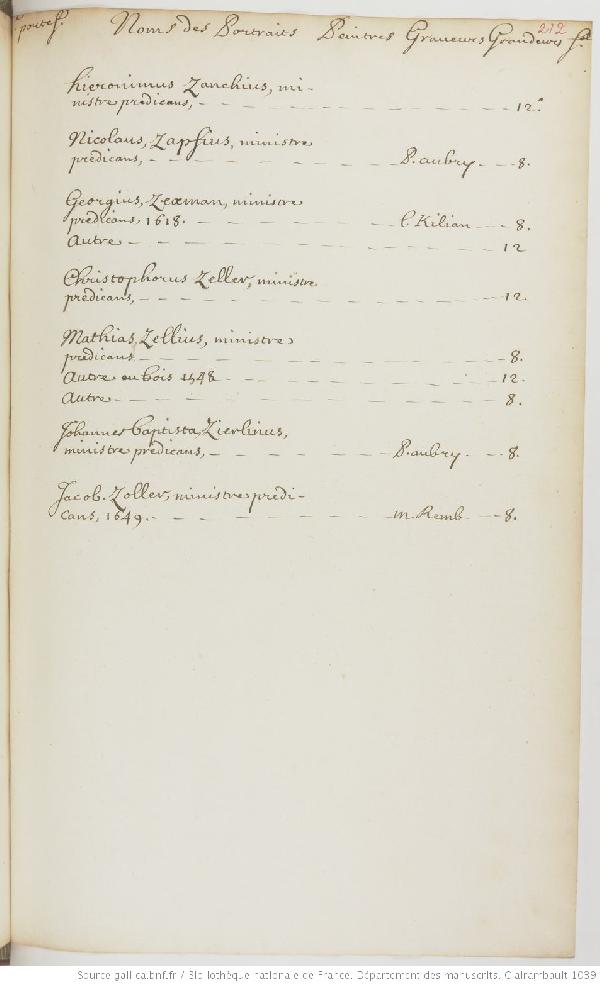 portef. Noms des Portraits Peintres Graveurs Grandeurs f.
212
hieronimus Zanchius, mi-
nistre prédicans, 12.
Nicolaus, Zapfius, ministre
prédicans, P. aubry 8.
Georgius, Zeæman, ministre
prédicans, 1618. L. Kilian 8.
Autre 12
Christophorus Zeller, ministre
prédicans, 12.
Mathias, Zellius, ministre
prédicans 8.
Autre en bois 1548 12.
Autre 8.
Johannes baptista, Zierlinus,
ministre prédicans, P. aubry 8.
Jacob. Zoller, ministre prédi-
cans, 1649. M. Remb 8.
Source gallica.bnf.fr / Bibliothèque nationale de France. Département des manuscrits. Clairambault 1039